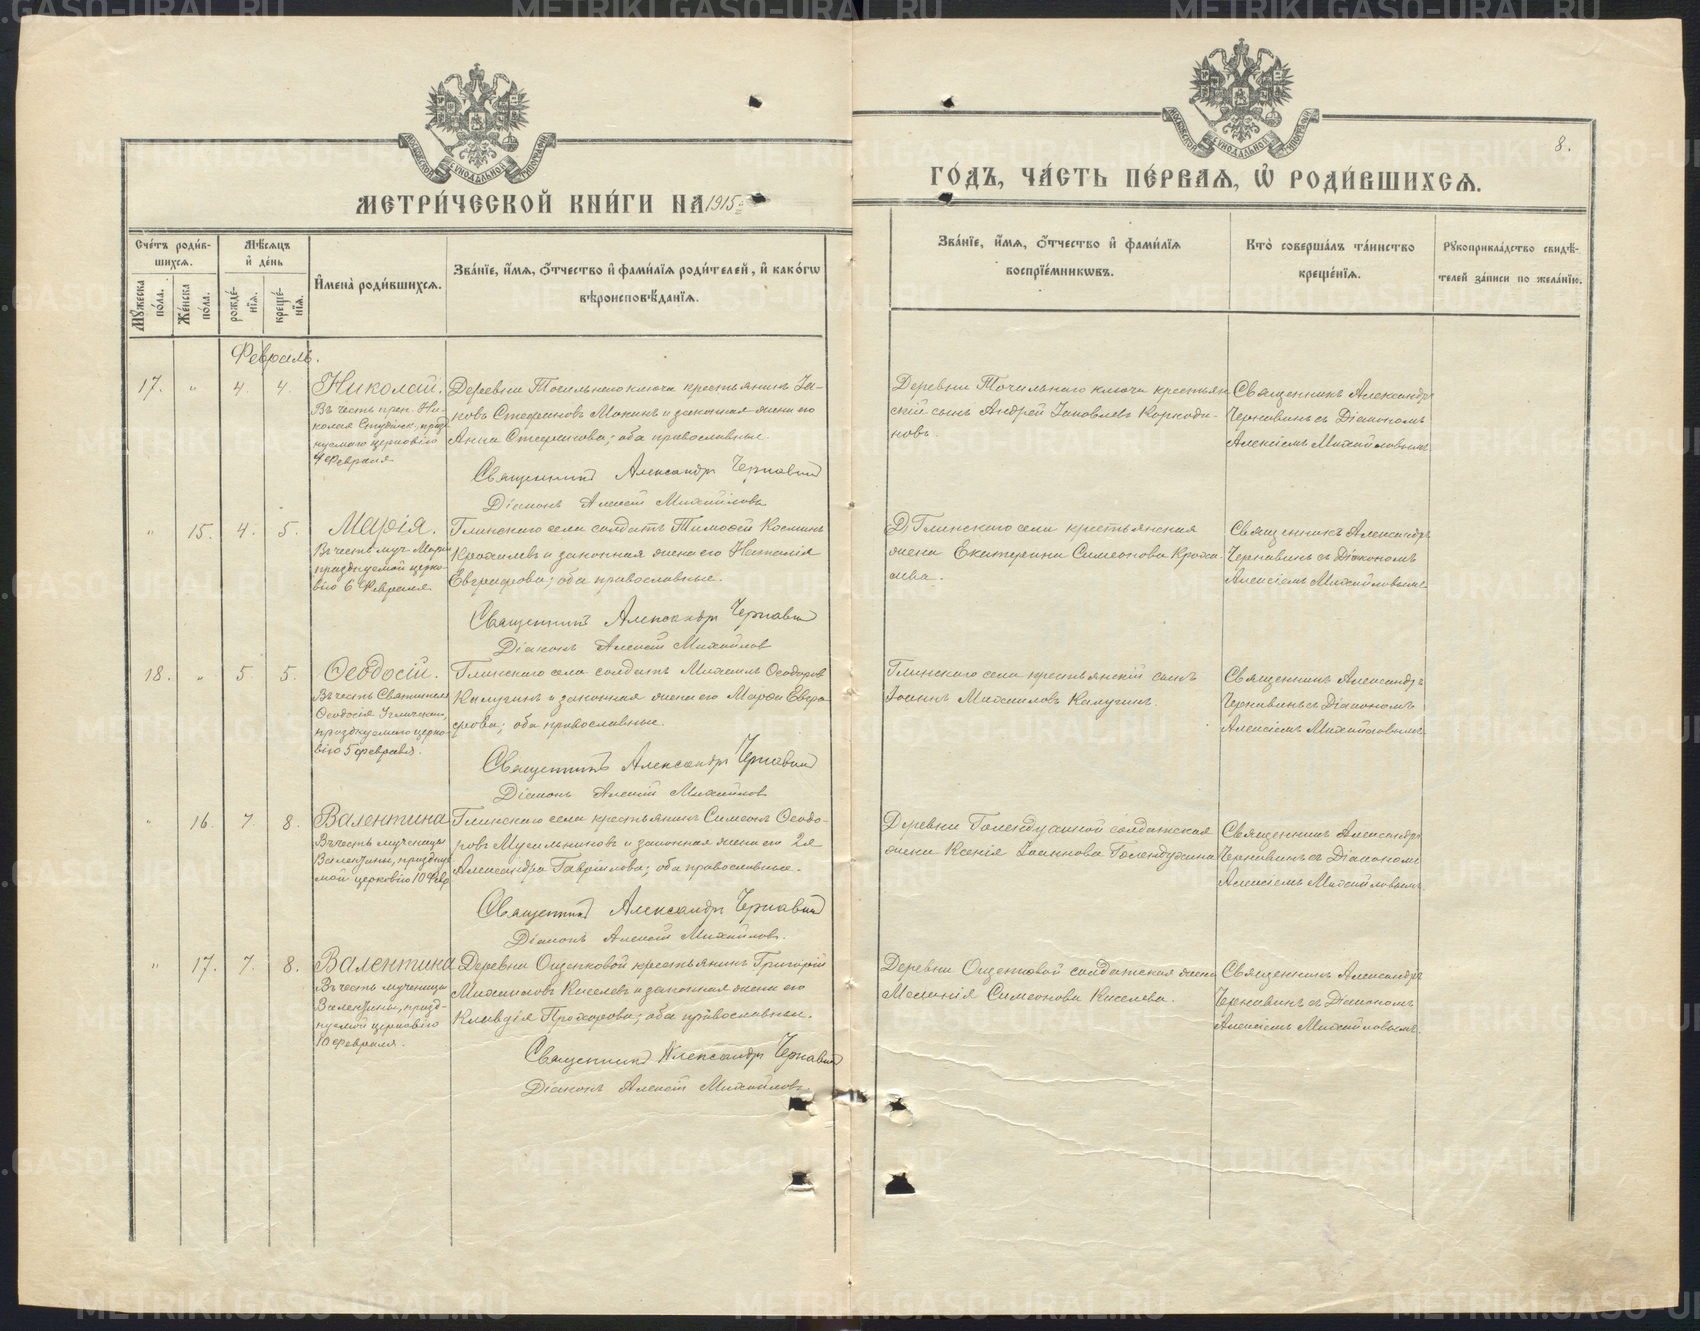 МЕТРИ́ЧЕСКОЙ КНИ́ГИ НА 1915
ГО́ДЪ, ЧА́СТЬ ПЕ́РВАЯ, Ѡ РОДИ́ВШИХСЯ.
8.
Сче́тъ роди́в-
шихся.
Му́жеска по́ла.
Же́нска по́ла.
Мѣ́сяцъ
и҆ де́нь
рожде́-
нїя.
креще́-
нїя.
И҆мена̀ роди́вшихся.
Зва́нїе, и҆́мя, ѻ҆́тчество и҆ фами́лїя роди́телей, и҆ како́гѡ
вѣроисповѣ́данїя.
Зва́нїе, и҆́мя, ѻ҆́тчество и҆ фами́лїя
воспрїе́мниковъ.
Кто̀ соверша́лъ та́инство
креще́нїя.
Рꙋкоприкла́дство свидѣ́-
телей за́писи по жела́нїю.
Февраль.
17. " 4. 4.
Николай.
Въ честь преп. Ни-
колая Студійск., празд
нуемаго церковію
4 Февраля
Деревни Точильнаго ключа крестьянинъ Іа-
ковъ Стефановъ Мокинъ и законная жена его
Анна Стефанова; оба православные.
Священникъ Александръ Чернавинъ
Діаконъ Алексій Михайловъ
Деревни Точильнаго ключа крестьян
скій сынъ Андрей Іаковлевъ Коркоди-
новъ.
Священникъ Александръ
Чернавинъ съ Діакономъ
Алексіемъ Михайловымъ.
" 15. 4. 5.
Марія.
Въ честь муч. Маріи
празднуемой церко-
вію 6 Февраля
Глинскаго села солдатъ Тимофей Косминъ
Крохалевъ и законная жена его Наталія
Евграфова; оба православные.
Священникъ Александръ Чернавинъ
Діаконъ Алексій Михайлов
Глинскаго села крестьянская
жена Екатерина Симеонова Кроха
лева.
Священникъ Александръ
Чернавинъ съ Діакономъ
Алексіемъ Михайловымъ
18. " 5. 5.
Ѳеодосій.
Въ честь Святителя
Ѳеодосія Углическаго,
празднуемаго церко-
вію 5 февраля.
Глинскаго села солдатъ Михаилъ Ѳеодоров
Калугинъ и законная жена его Марфа Евгра
фова; оба православные.
Священникъ Александръ Чернавинъ
Діаконъ Алексій Михайлов
Глинскаго села крестьянскій сынъ
Іоаннъ Михаиловъ Калугинъ.
Священникъ Александръ
Чернавинъ съ Діакономъ
Алексіемъ Михайловымъ
" 16. 7. 8.
Валентина
Въ честь мученицы
Валентины, праздну
мой церковію 10 Февр
Глинскаго села крестьянинъ Симеонъ Ѳеодо-
ровъ Мусальниковъ и законная жена его 2я
Александра Гавріилова; оба православные.
Священникъ Александръ Чернавинъ
Діаконъ Алексій Михайловъ.
Деревни Голендухиной солдатская
жена Ксенія Іоаннова Голендухина
Священникъ Александръ
Чернавинъ съ Діакономъ
Алексіемъ Михайловымъ.
" 17. 7. 8.
Валентина
Въ честь мученицы
Валентины, празд-
нуемой церковію
10 Февраля.
Деревни Ощепковой крестьянинъ Григорій
Михаиловъ Киселевъ и законная жена его
Клавдія Прохорова; оба православные.
Священникъ Александръ Чернавинъ
Діаконъ Алексій Михайловъ
Деревни Ощепковой солдатская жена
Меланія Симеонова Киселева.
Священникъ Александръ
Чернавинъ съ Діакономъ
Алексіемъ Михайловымъ.
METRIKI.GASO-URAL.RU